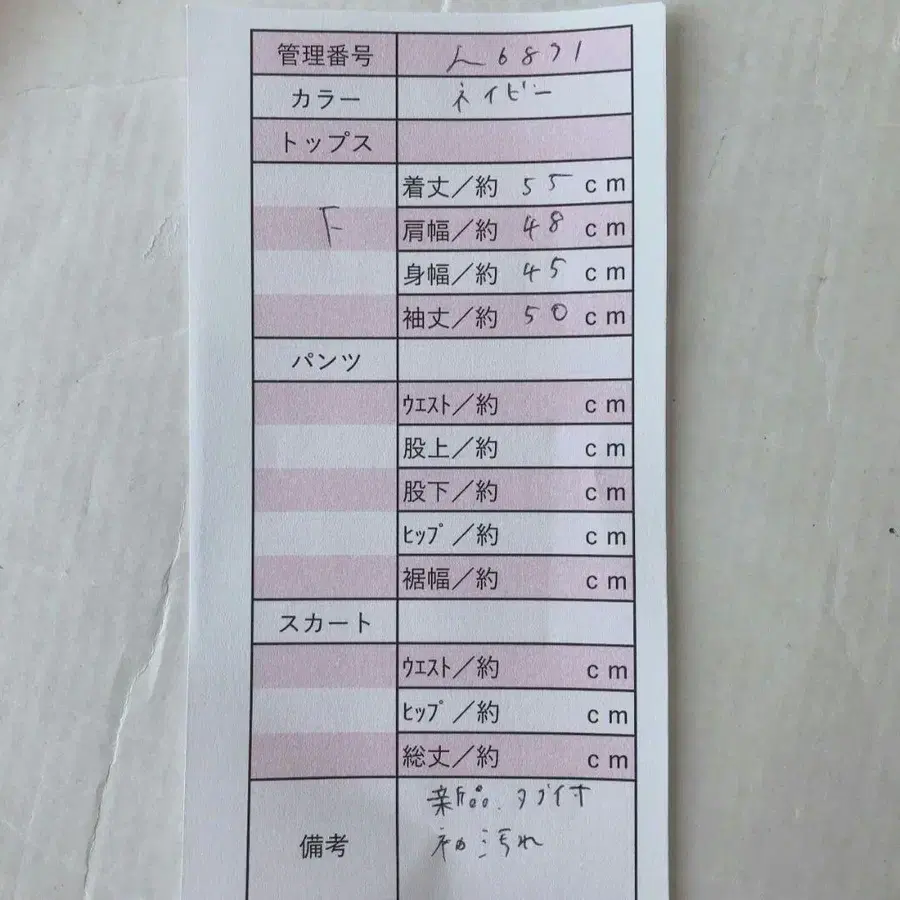 管理番号
カラー ネイビー
トップス
着丈／約 55 cm
F 肩幅／約 48 cm
身幅／約 45 cm
袖丈／約 50 cm
パンツ
ｳｴｽﾄ／約 cm
股上／約 cm
股下／約 cm
ﾋｯﾌﾟ／約 cm
裾幅／約 cm
スカート
ｳｴｽﾄ／約 cm
ﾋｯﾌﾟ／約 cm
総丈／約 cm
新品.タグ付
備考 袖汚れ